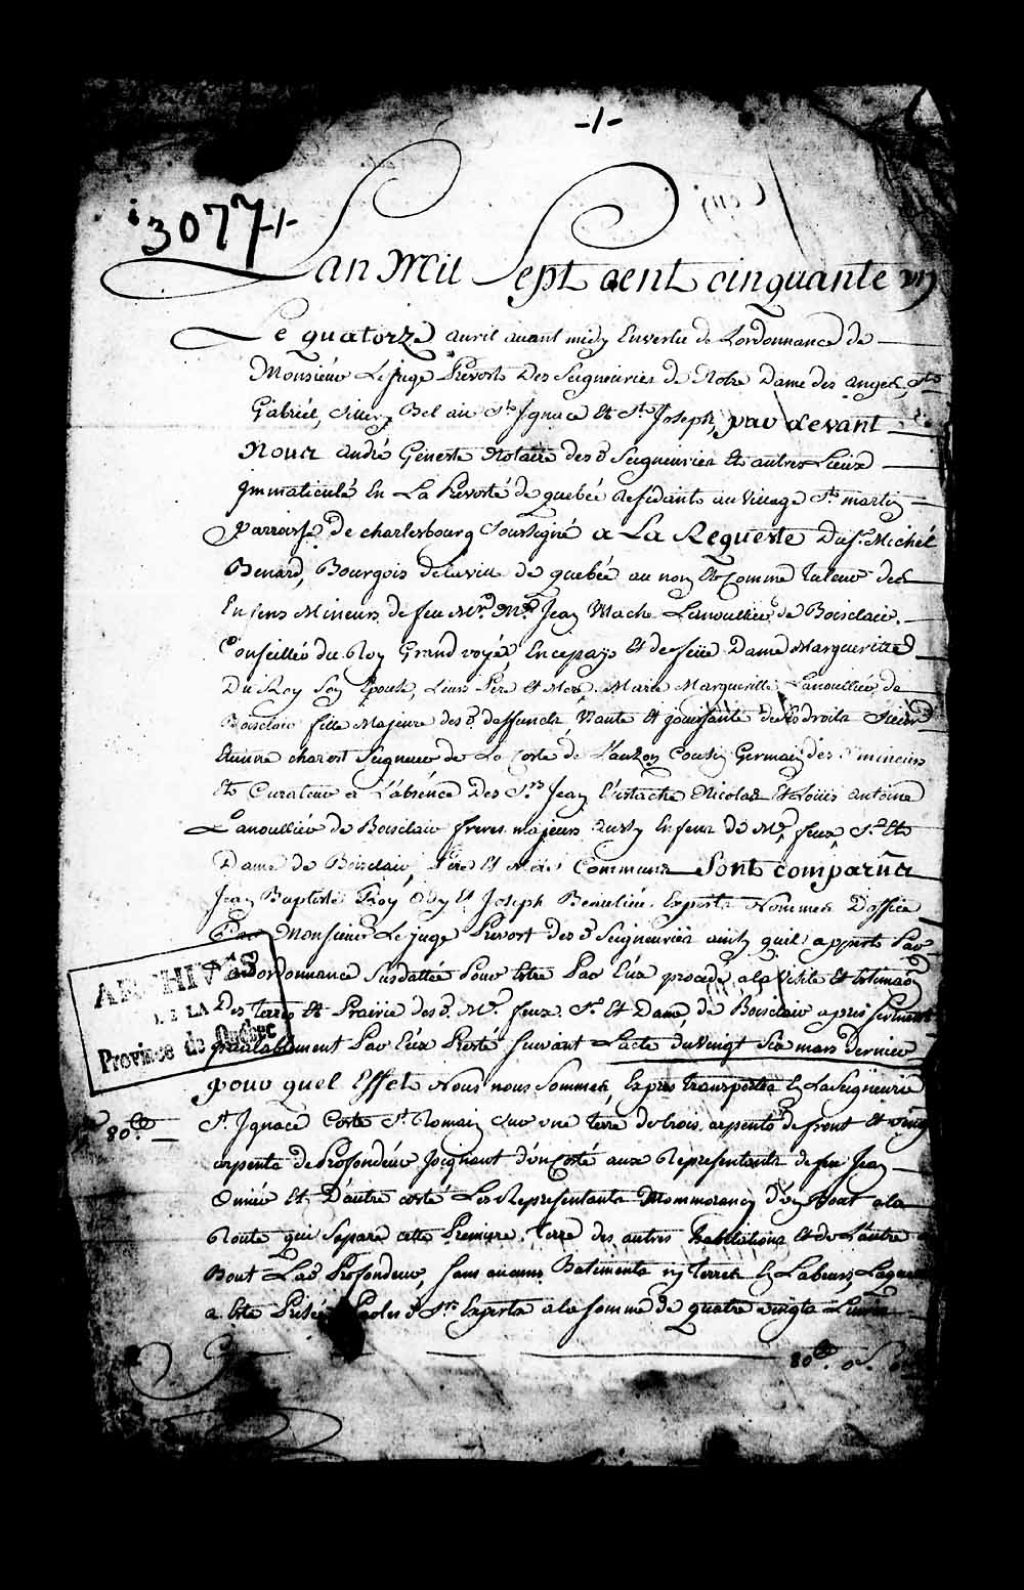 -1-
3077-1-
Lan Mil Sept cent cinquante un
Le quatorze avril avant midy Envertu de Lordonnance de
Monsieur Le Juge Prevost Des Seigneuries de Notre Dame des anges, St
Gabriel, Sillery Bel air St Ignace Et St Joseph, par devant
Nous andré Geneste Notaire des d Seigneuries Et autres Lieux
Immatriculé En La Prevosté de quebéc Residants au Village St martin
Parroisse de charlesbourg Soussigné a La Requeste Du Sr Michél
Benard, Bourgois delaville de quebéc au nom Et Comme tuteur des
Enfens Mineurs de feu Mre Me Jean Lanoullier de Boisclair,
Conseillér du Roy Grand voyér Encepays Et de feüe Dame Margueritte
Du Roy Son Epouse, Leurs Pere et Mere. Marie Margueritte Lanoulliér de
Boisclair fille Majeure des d deffuncts, Et jouissante de ses droits Sieur
Etienne charest Seigneur de La Coste de Lauzon Cousin Germain des d mineurs
Et Curateur a L'absénce Des Srs Jean Eustache Nicolas Et Loüis antoine
Lanoulliér de Boisclair freres majeurs aussy Enfens de Mr feux Sr Et
Dame de Boisclair, Pere Et Mere Communs Sont comparûs
Jean Baptiste Et Joseph Beaulieu Experts Nommés D'office
Par Monsieur Le juge Prevost des d Seigneuries ainsy quil appert Par
Son ordonnance Susdattée Pour Estre Par Eux procedé a la Visite Et Estimaon
Des Terres Et Prairie des d. Mr. feux Sr Et Dame, de Boisclair apres Serment
prealablement Par Eux Presté Suivant Lacte du Vingt Six mars dernier
pour quel Effet Nous nous Sommes, Exprés transportés En La Seigneurie
St Ignace Coste St Romain Sur une terre de trois arpents de front Et vingt
arpents de Profondeur Joignant d'un Costé aux Representants de feu Jean
Et D'autre costé Les Representants Mommorancy d'un Bout a la
Route qui Separe cette Premiere Terre des autres habitations Et de L'autre
Bout La d Profondeur, Sans aucuns Batiments ny terres En Labeurs, Laquelle
a Esté Prisée Par les d Srs Experts a la Somme de quatre vingts Livres
80lt
80lt
ARCHIVES
DE LA
Province de Québec